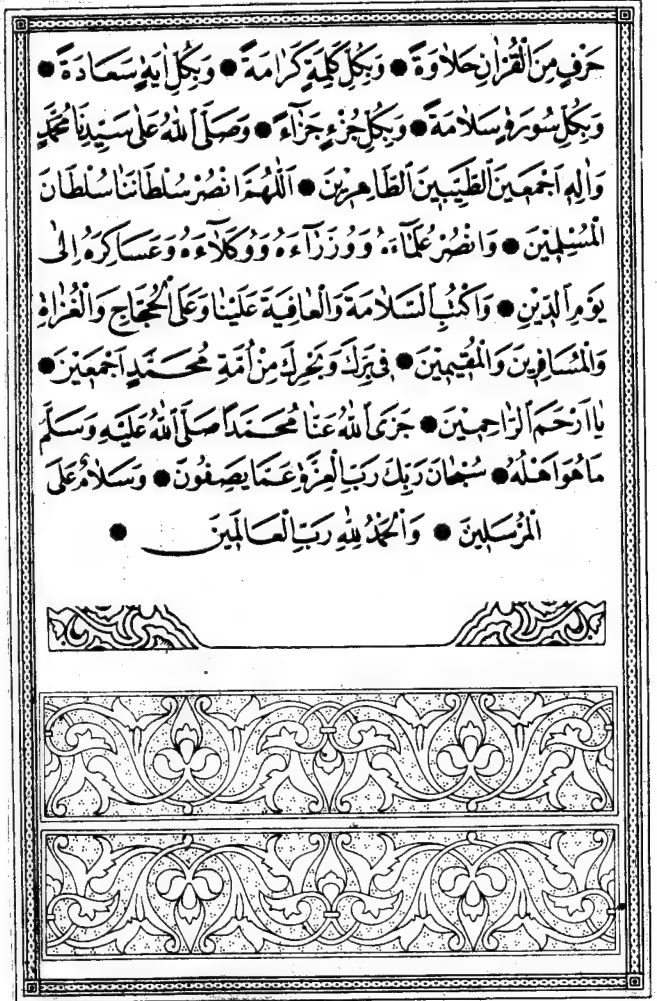 حَرْفٍ مِنَ الْقُرْاٰنِ حَلَاوَةً ● وَبِكُلِّ كَلِمَةٍ كَرَامَةً ● وَبِكُلِّ اٰيَةٍ سَعَادَةً ●
وَبِكُلِّ سُورَةٍ سَلَامَةً ● وَبِكُلِّ جُزْءٍ جَزَآءً ● وَصَلَّى اللّٰهُ عَلٰى سَيِّدِنَا مُحَمَّدٍ
وَاٰلِهِ اَجْمَعِينَ الطَّيِّبِينَ الطَّاهِرِينَ ● اَللّٰهُمَّ انْصُرْ سُلْطَانَنَا سُلْطَانَ
الْمُسْلِمِينَ ● وَانْصُرْ عُلَمَآءَهُ وَوُزَرَآءَهُ وَوُكَلَاءَهُ وَعَسَاكِرَهُ اِلٰى
يَوْمِ الدِّينِ ● وَاكْتُبِ السَّلَامَةَ وَالْعَافِيَةَ عَلَيْنَا وَعَلَى الْحُجَّاجِ وَالْغُزَاةِ
وَالْمُسَافِرِينَ وَالْمُقِيمِينَ ● فِى بَرِّكَ وَبَحْرِكَ مِنْ اُمَّةِ مُحَمَّدٍ اَجْمَعِينَ ●
يَا اَرْحَمَ الرَّاحِمِينَ ● جَزَى اللّٰهُ عَنَّا مُحَمَّدًا صَلَّى اللّٰهُ عَلَيْهِ وَسَلَّمَ
مَا هُوَ اَهْلُهُ ● سُبْحَانَ رَبِّكَ رَبِّ الْعِزَّةِ عَمَّا يَصِفُونَ ● وَسَلَامٌ عَلَى
الْمُرْسَلِينَ ● وَالْحَمْدُ لِلّٰهِ رَبِّ الْعَالَمِينَ ●